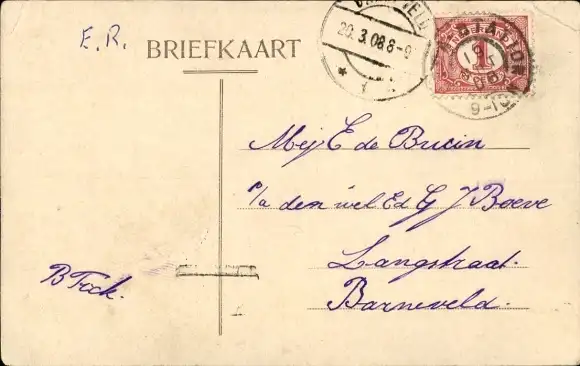 E.R.
BRIEFKAART
20.3.08.8-9
1
9-10
Mej E de Bruin
p/a den wel Ed G J Boeve
Langstraat.
Barneveld.
B Fock.